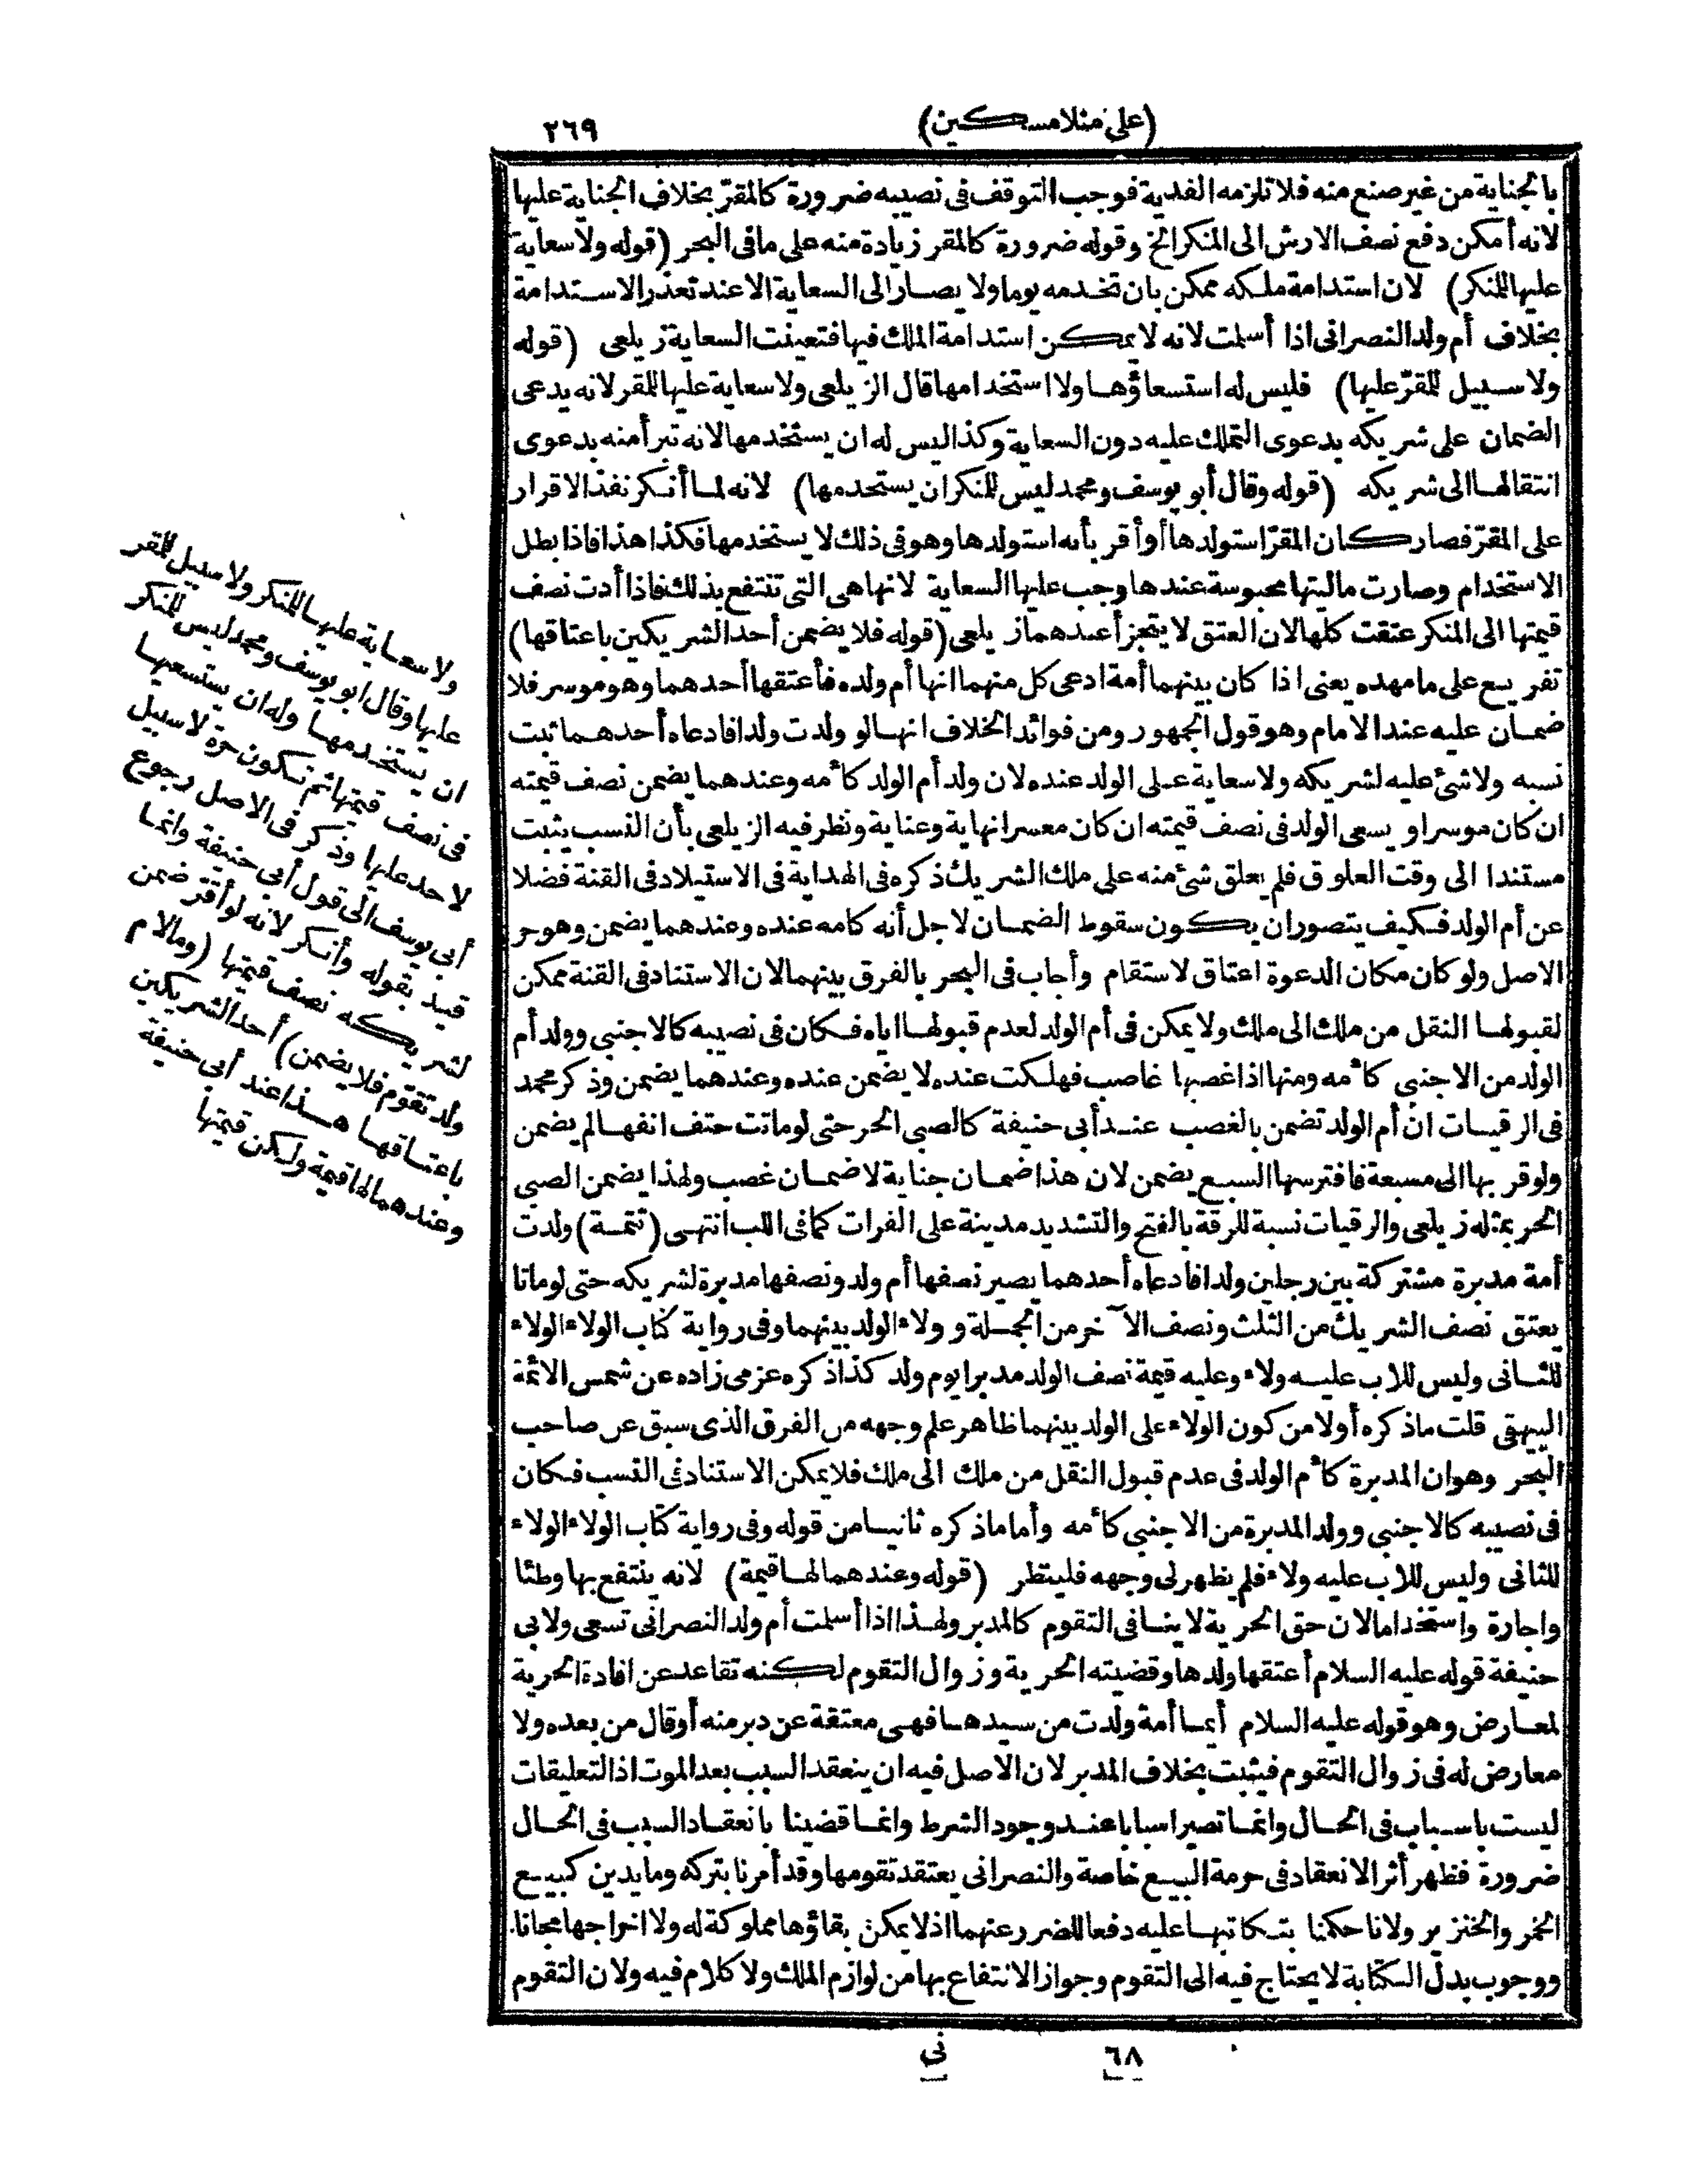 (على منلا مسكين) ٢٦٩
بالجناية من غير صنع منه فلا تلزمه الفدية فوجب التوقف فى نصيبه ضرورة كالمقرّ بخلاف الجناية عليها
لانه أمكن دفع نصف الارش الى المنكر الخ وقوله ضرورة كالمقر زيادة منه على ما فى البحر (قوله ولا سعاية
عليها للمنكر) لان استدامة ملكه ممكن بان تخدمه يوما ولا يصار الى السعاية الا عند تعذر الاستدامة
بخلاف أم ولد النصرانى اذا أسلمت لانه لا يمكن استدامة الملك فيها فتعينت السعاية زيلعى (قوله
ولا سبيل للمقرّ عليها) فليس له استسعاؤها ولا استخدامها قال الزيلعى ولا سعاية عليها للمقر لانه يدعى
الضمان على شريكه بدعوى التملك عليه دون السعاية وكذا ليس له ان يستخدمها لانه تبرأ منه بدعوى
انتقالها الى شريكه (قوله وقال أبو يوسف ومحمد ليس للمنكر ان يستخدمها) لانه لما أنكر نفذ الاقرار
على المقرّ فصار كان المقرّ استولدها أو أقر بأنه استولدها وهو فى ذلك لا يستخدمها فكذا هذا فاذا بطل
الاستخدام وصارت ماليتها محبوسة عندها وجب عليها السعاية لانها هى التى تنتفع بذلك فاذا أدت نصف
قيمتها الى المنكر عتقت كلها لان العتق لا يتجزأ عندهما زيلعى (قوله فلا يضمن أحد الشريكين باعتاقها)
تفريع على ما مهده يعنى اذا كان بينهما أمة ادعى كل منهما انها أم ولده فأعتقها أحدهما وهو موسر فلا
ضمان عليه عند الامام وهو قول الجمهور ومن فوائد الخلاف انها لو ولدت ولدا فادعاه أحدهما ثبت
نسبه ولا شئ عليه لشريكه ولا سعاية على الولد عنده لان ولد أم الولد كأمه وعندهما يضمن نصف قيمته
ان كان موسرا ويسعى الولد فى نصف قيمته ان كان معسرا نهاية وعناية ونظر فيه الزيلعى بأن النسب يثبت
مستندا الى وقت العلوق فلم يعلق شئ منه على ملك الشريك ذكره فى الهداية فى الاستيلاد فى القنة فضلا
عن أم الولد فكيف يتصور ان يكون سقوط الضمان لاجل أنه كامه عنده وعندهما يضمن وهو حر
الاصل ولو كان مكان الدعوة اعتاق لاستقام وأجاب فى البحر بالفرق بينهما لان الاستناد فى القنة ممكن
لقبولها النقل من ملك الى ملك ولا يمكن فى أم الولد لعدم قبولها اياه فكان فى نصيبه كالاجنبى وولد أم
الولد من الاجنبى كأمه ومنها اذا غصبها غاصب فهلكت عنده لا يضمن عنده وعندهما يضمن وذكر محمد
فى الرقيات انّ أم الولد تضمن بالغصب عند أبى حنيفة كالصبى الحر حتى لو ماتت حتف انفها لم يضمن
ولو قربها الى مسبعة فافترسها السبع يضمن لان هذا ضمان جناية لا ضمان غصب ولهذا يضمن الصبى
الحر بمثله زيلعى والرقيات نسبة للرقة بالفتح والتشديد مدينة على الفرات كما فى اللب انتهى (تتمة) ولدت
أمة مدبرة مشتركة بين رجلين ولدا فادعاه أحدهما يصير نصفها أم ولد ونصفها مدبرة لشريكه حتى لو ماتا
يعتق نصف الشريك من الثلث ونصف الآخر من الجملة وولاء الولد بينهما وفى رواية كتاب الولاء الولاء
للثانى وليس للاب عليه ولاء وعليه قيمة نصف الولد مدبرا يوم ولد كذا ذكره عزمى زاده عن شمس الائمة
البيهقى قلت ما ذكره أولا من كون الولاء على الولد بينهما ظاهر علم وجهه من الفرق الذى سبق عن صاحب
البحر وهو ان المدبرة كأم الولد فى عدم قبول النقل من ملك الى ملك فلا يمكن الاستناد فى النسب فكان
فى نصيبه كالاجنبى وولد المدبرة من الاجنبى كأمه وأما ما ذكره ثانيا من قوله وفى رواية كتاب الولاء الولاء
للثانى وليس للاب عليه ولاء فلم يظهر لى وجهه فلينظر (قوله وعندهما لها قيمة) لانه ينتفع بها وطئا
واجارة واستخداما لان حق الحرية لا ينافى التقوم كالمدبر ولهذا اذا أسلمت أم ولد النصرانى تسعى ولابى
حنيفة قوله عليه السلام أعتقها ولدها وقضيته الحرية وزوال التقوم لكنه تقاعد عن افادة الحرية
لمعارض وهو قوله عليه السلام أيما أمة ولدت من سيدها فهى معتقة عن دبر منه أو قال من بعده ولا
معارض له فى زوال التقوم فيثبت بخلاف المدبر لان الاصل فيه ان ينعقد السبب بعد الموت اذ التعليقات
ليست باسباب فى الحال وانما تصير اسبابا عند وجود الشرط وانما قضينا بانعقاد السبب فى الحال
ضرورة فظهر أثر الانعقاد فى حرمة البيع خاصة والنصرانى يعتقد تقومها وقد أمرنا بتركه وما يدين كبيع
الخمر والخنزير ولانا حكمنا بتكاتبها عليه دفعا للضرر عنهما اذ لا يمكن بقاؤها مملوكة له ولا اخراجها مجانا
ووجوب بدل الكتابة لا يحتاج فيه الى التقوم وجواز الانتفاع بها من لوازم الملك ولا كلام فيه ولان التقوم
ولا سعاية عليها للمنكر ولا سبيل للمقر
عليها وقال ابو يوسف ومحمد ليس للمنكر
ان يستخدمها وله ان يستسعيها
فى نصف قيمتها ثم تكون حرة لا سبيل
لاحد عليها وذكر فى الاصل رجوع
أبى يوسف الى قول أبى حنيفة وانما
قيد بقوله وأنكر لانه لو أقرّ ضمن
لشريكه نصف قيمتها (وما لام
ولد تقوّم فلا يضمن) أحد الشريكين
باعتاقها هذا عند أبى حنيفة
وعندهما لها قيمة ولكن قيمتها
٦٨ نى